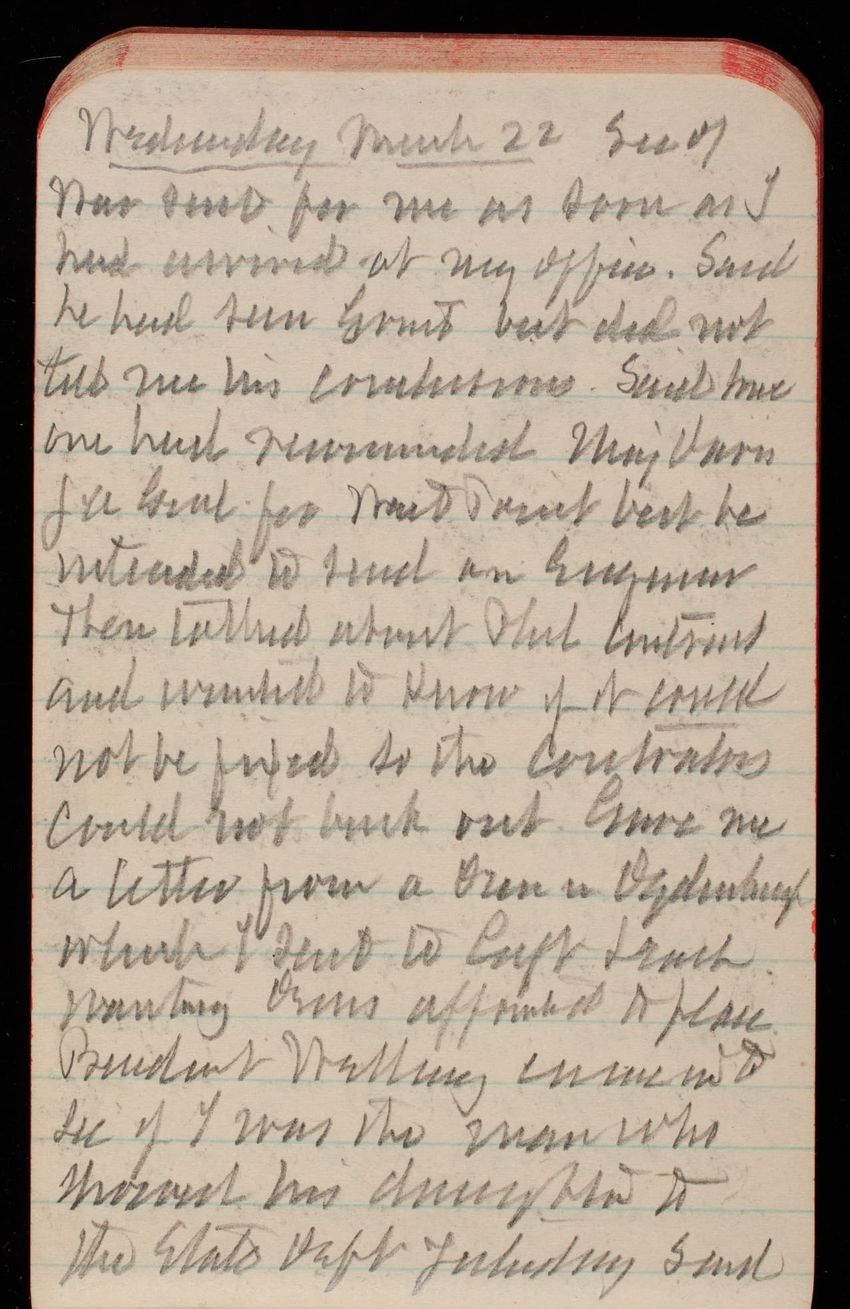 Wednesday March 22 Sec of
War sent for me as soon as I
had arrived at my office. Said
he had seen Grant but did not
tell me his conclusions. Said
one had recommended Maj Davis
for West Point but he
intended to send an Engineer
Then talked about contract
and wanted to know if it could
not be fixed so the contrators
could not back out. Gave me
a letter from a in Ogdenburgh
which I sent to Capt
wanting appointed to place
President Welling came in to
see if I was the man who
showed his daughter to
the State Dept yesterday said